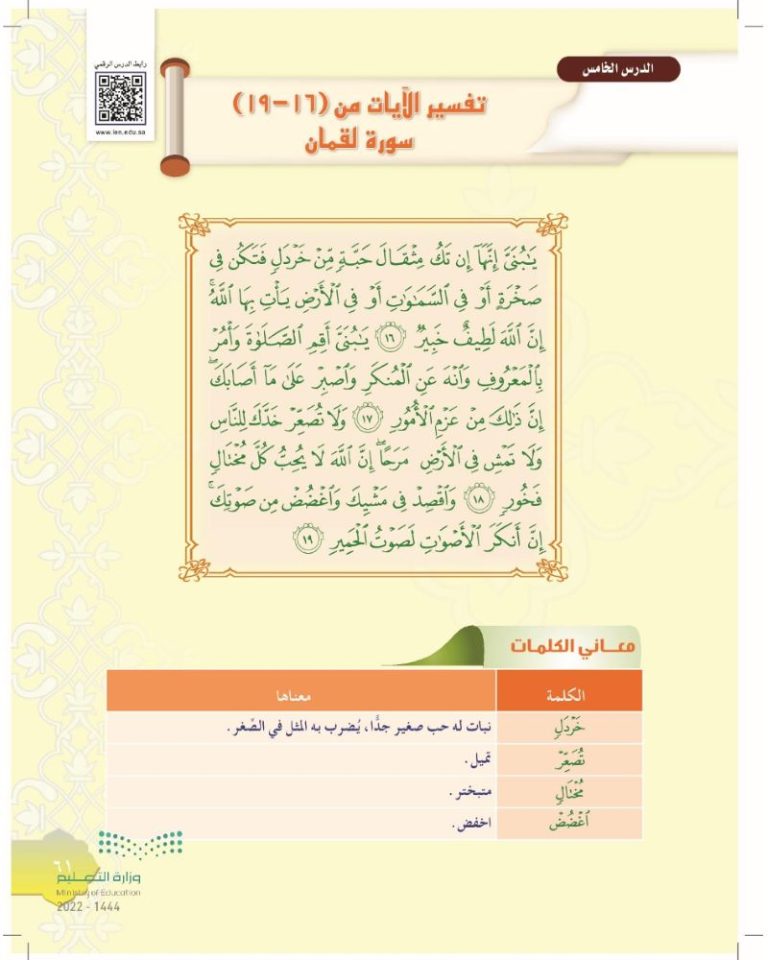 رابط الدرس الرقمي
www.ien.edu.sa
الدرس الخامس
تفسير الآيات من (١٦-١٩)
سورة لقمان
يَٰبُنَيَّ إِنَّهَآ إِن تَكُ مِثۡقَالَ حَبَّةٖ مِّنۡ خَرۡدَلٖ فَتَكُن فِي
صَخۡرَةٍ أَوۡ فِي ٱلسَّمَٰوَٰتِ أَوۡ فِي ٱلۡأَرۡضِ يَأۡتِ بِهَا ٱللَّهُۚ
إِنَّ ٱللَّهَ لَطِيفٌ خَبِيرٞ ١٦ يَٰبُنَيَّ أَقِمِ ٱلصَّلَوٰةَ وَأۡمُرۡ
بِٱلۡمَعۡرُوفِ وَٱنۡهَ عَنِ ٱلۡمُنكَرِ وَٱصۡبِرۡ عَلَىٰ مَآ أَصَابَكَۖ
إِنَّ ذَٰلِكَ مِنۡ عَزۡمِ ٱلۡأُمُورِ ١٧ وَلَا تُصَعِّرۡ خَدَّكَ لِلنَّاسِ
وَلَا تَمۡشِ فِي ٱلۡأَرۡضِ مَرَحًاۖ إِنَّ ٱللَّهَ لَا يُحِبُّ كُلَّ مُخۡتَالٖ
فَخُورٖ ١٨ وَٱقۡصِدۡ فِي مَشۡيِكَ وَٱغۡضُضۡ مِن صَوۡتِكَۚ
إِنَّ أَنكَرَ ٱلۡأَصۡوَٰتِ لَصَوۡتُ ٱلۡحَمِيرِ ١٩
معاني الكلمات
الكلمة معناها
خَرۡدَلٖ نبات له حب صغير جدًّا، يُضرب به المثل في الصِّغر.
تُصَعِّرۡ تميل.
مُخۡتَالٖ متبختر.
ٱغۡضُضۡ اخفض.
٦١
وزارة التعليم
Ministry of Education
2022 - 1444